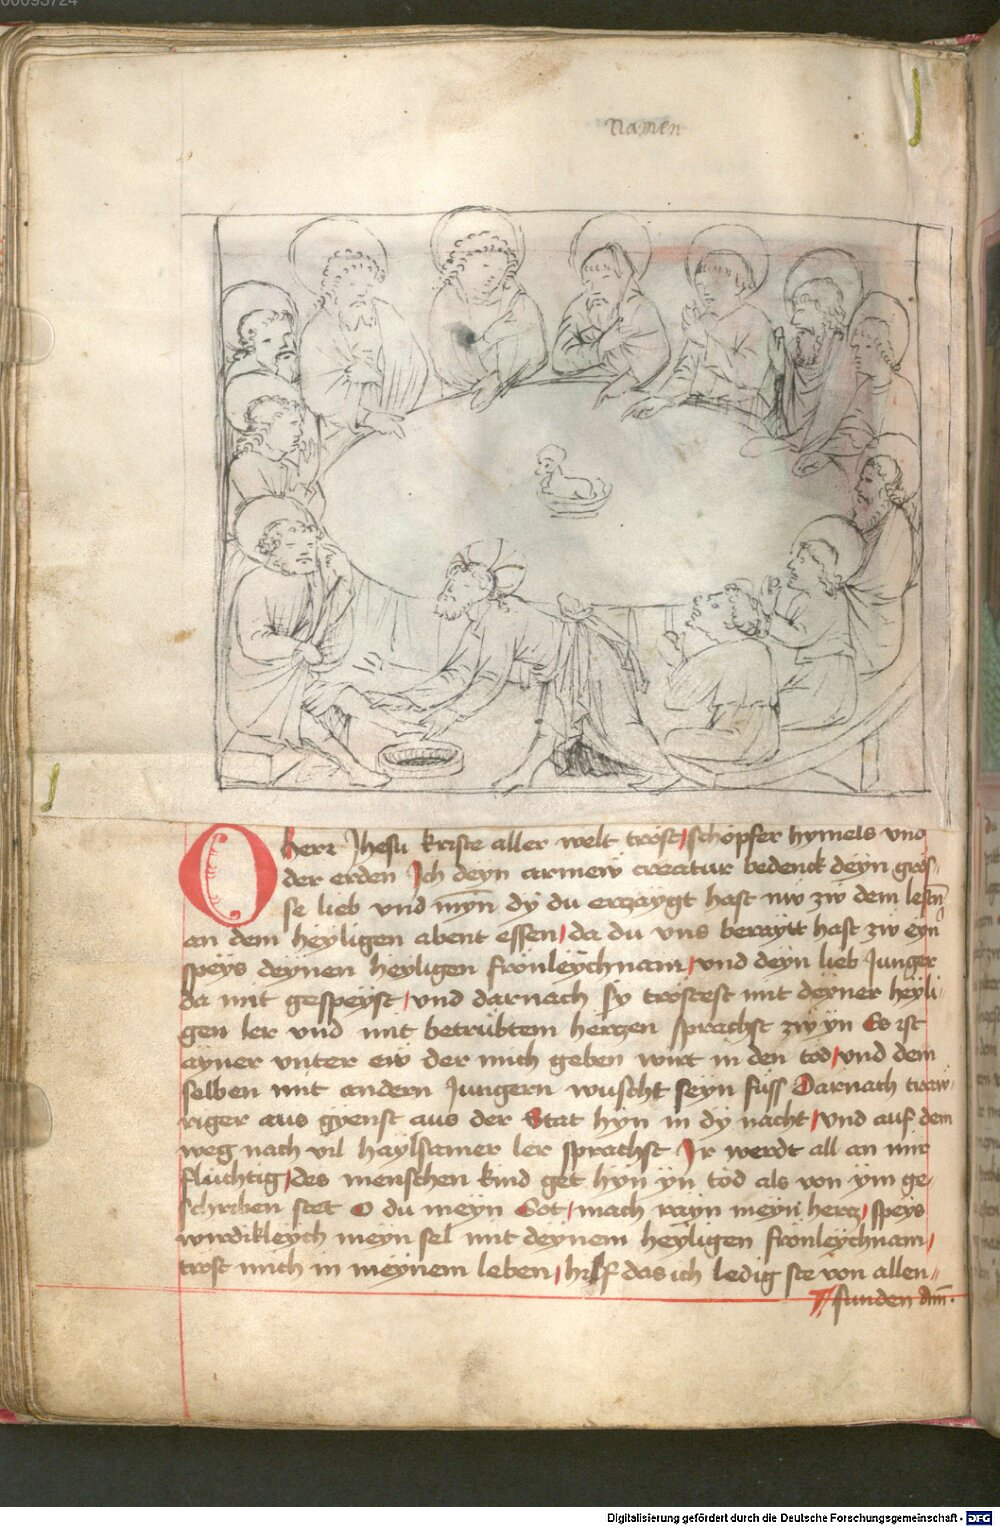 00093724
namen
O herr Jhesu kriste aller welt trost/ schöpfer hymels vnd
der erden Ich deyn armew creatur bedenck deyn gros-
se lieb vnd myn̄ dy du erczaygt hast nw zw dem lestn̄
an dem heyligen abent essen/ da du vns berayt hast zw eyn
speys deynen heyligen fronleychnam/ vnd deyn lieb Junger
da mit gespeyst/ vnd darnach sy tröstest mit deyner heyli-
gen ler vnd mit betrübtem herczen sprachst zw yn Es ist
ayner vnter ew der mich geben wirt in den tod/ vnd dem
selben mit andern Jungern wuscht seyn füss Darnach traw-
riger aus gyenst aus der Stat hyn in dy nacht/ vnd auf dem
weg nach vil haylsamer ler sprachst Ir werdt all an mir
fluchtig/ des menschen kind get hyn yn tod als von ym ge-
schriben stet O du meyn Got/ mach rayn meyn hercz/ speys
wirdikleych meyn sel mit deynem heyligen fronleychnam/
trost mich in meynem leben/ hilf das ich ledig ste von allen
sunden Am̄.
Digitalisierung gefördert durch die Deutsche Forschungsgemeinschaft - DFG